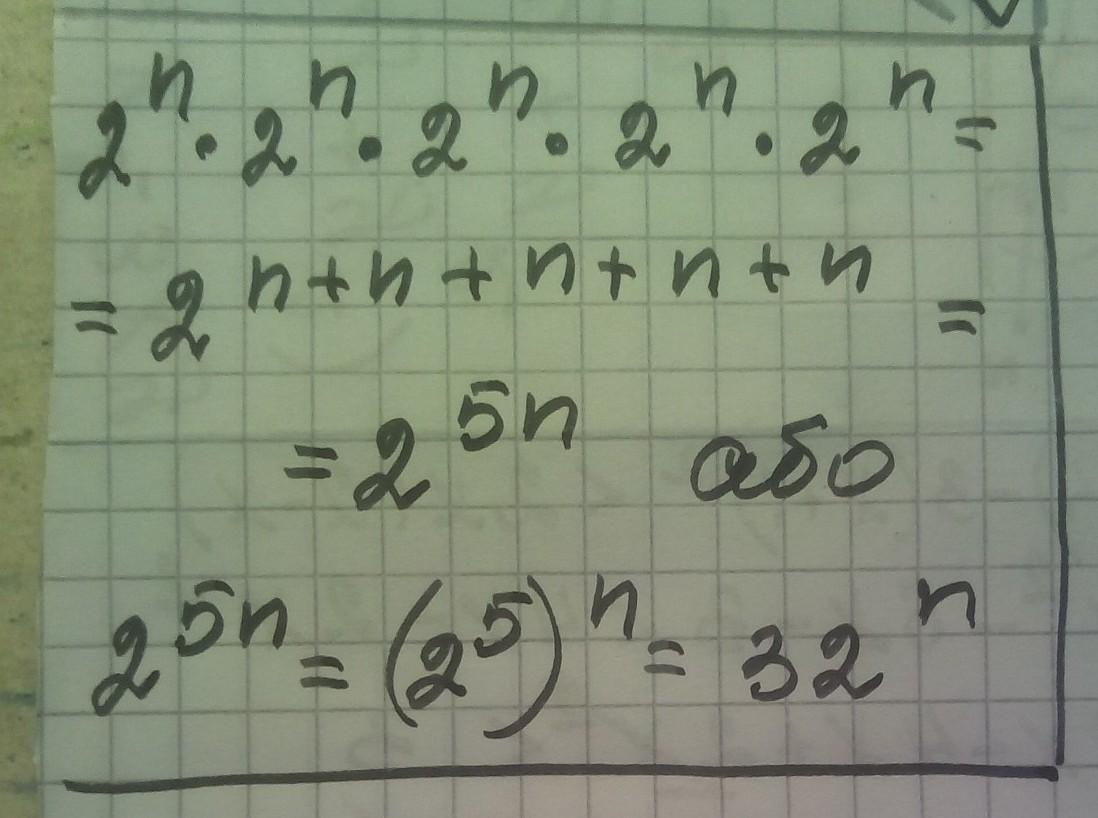 2ⁿ · 2ⁿ · 2ⁿ · 2ⁿ · 2ⁿ =
= 2ⁿ⁺ⁿ⁺ⁿ⁺ⁿ⁺ⁿ =
= 2⁵ⁿ або
2⁵ⁿ = (2⁵)ⁿ = 32ⁿ